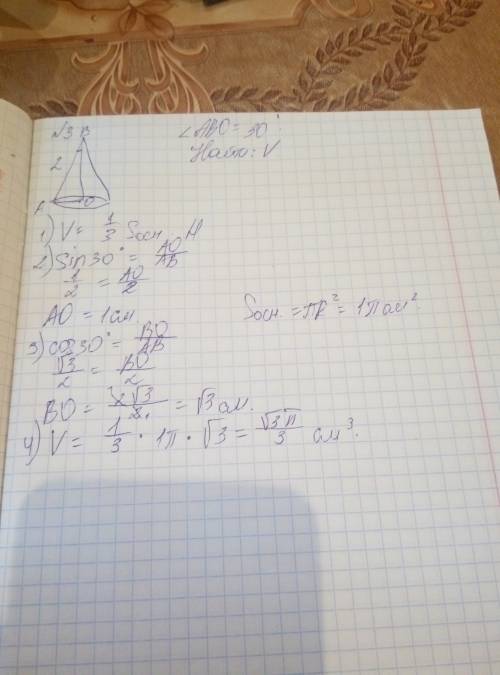 №3 B
∠ABO = 30°
Найти: V
2
A O
1) V = 1/3 Sосн. H
2) Sin 30° = AO/AB
1/2 = AO/2
AO = 1 см
Sосн. = πR² = 1π см²
3) cos 30° = BO/AB
√3/2 = BO/2
BO = 2√3/2 = √3 см.
4) V = 1/3 · 1π · √3 = √3π/3 см³.